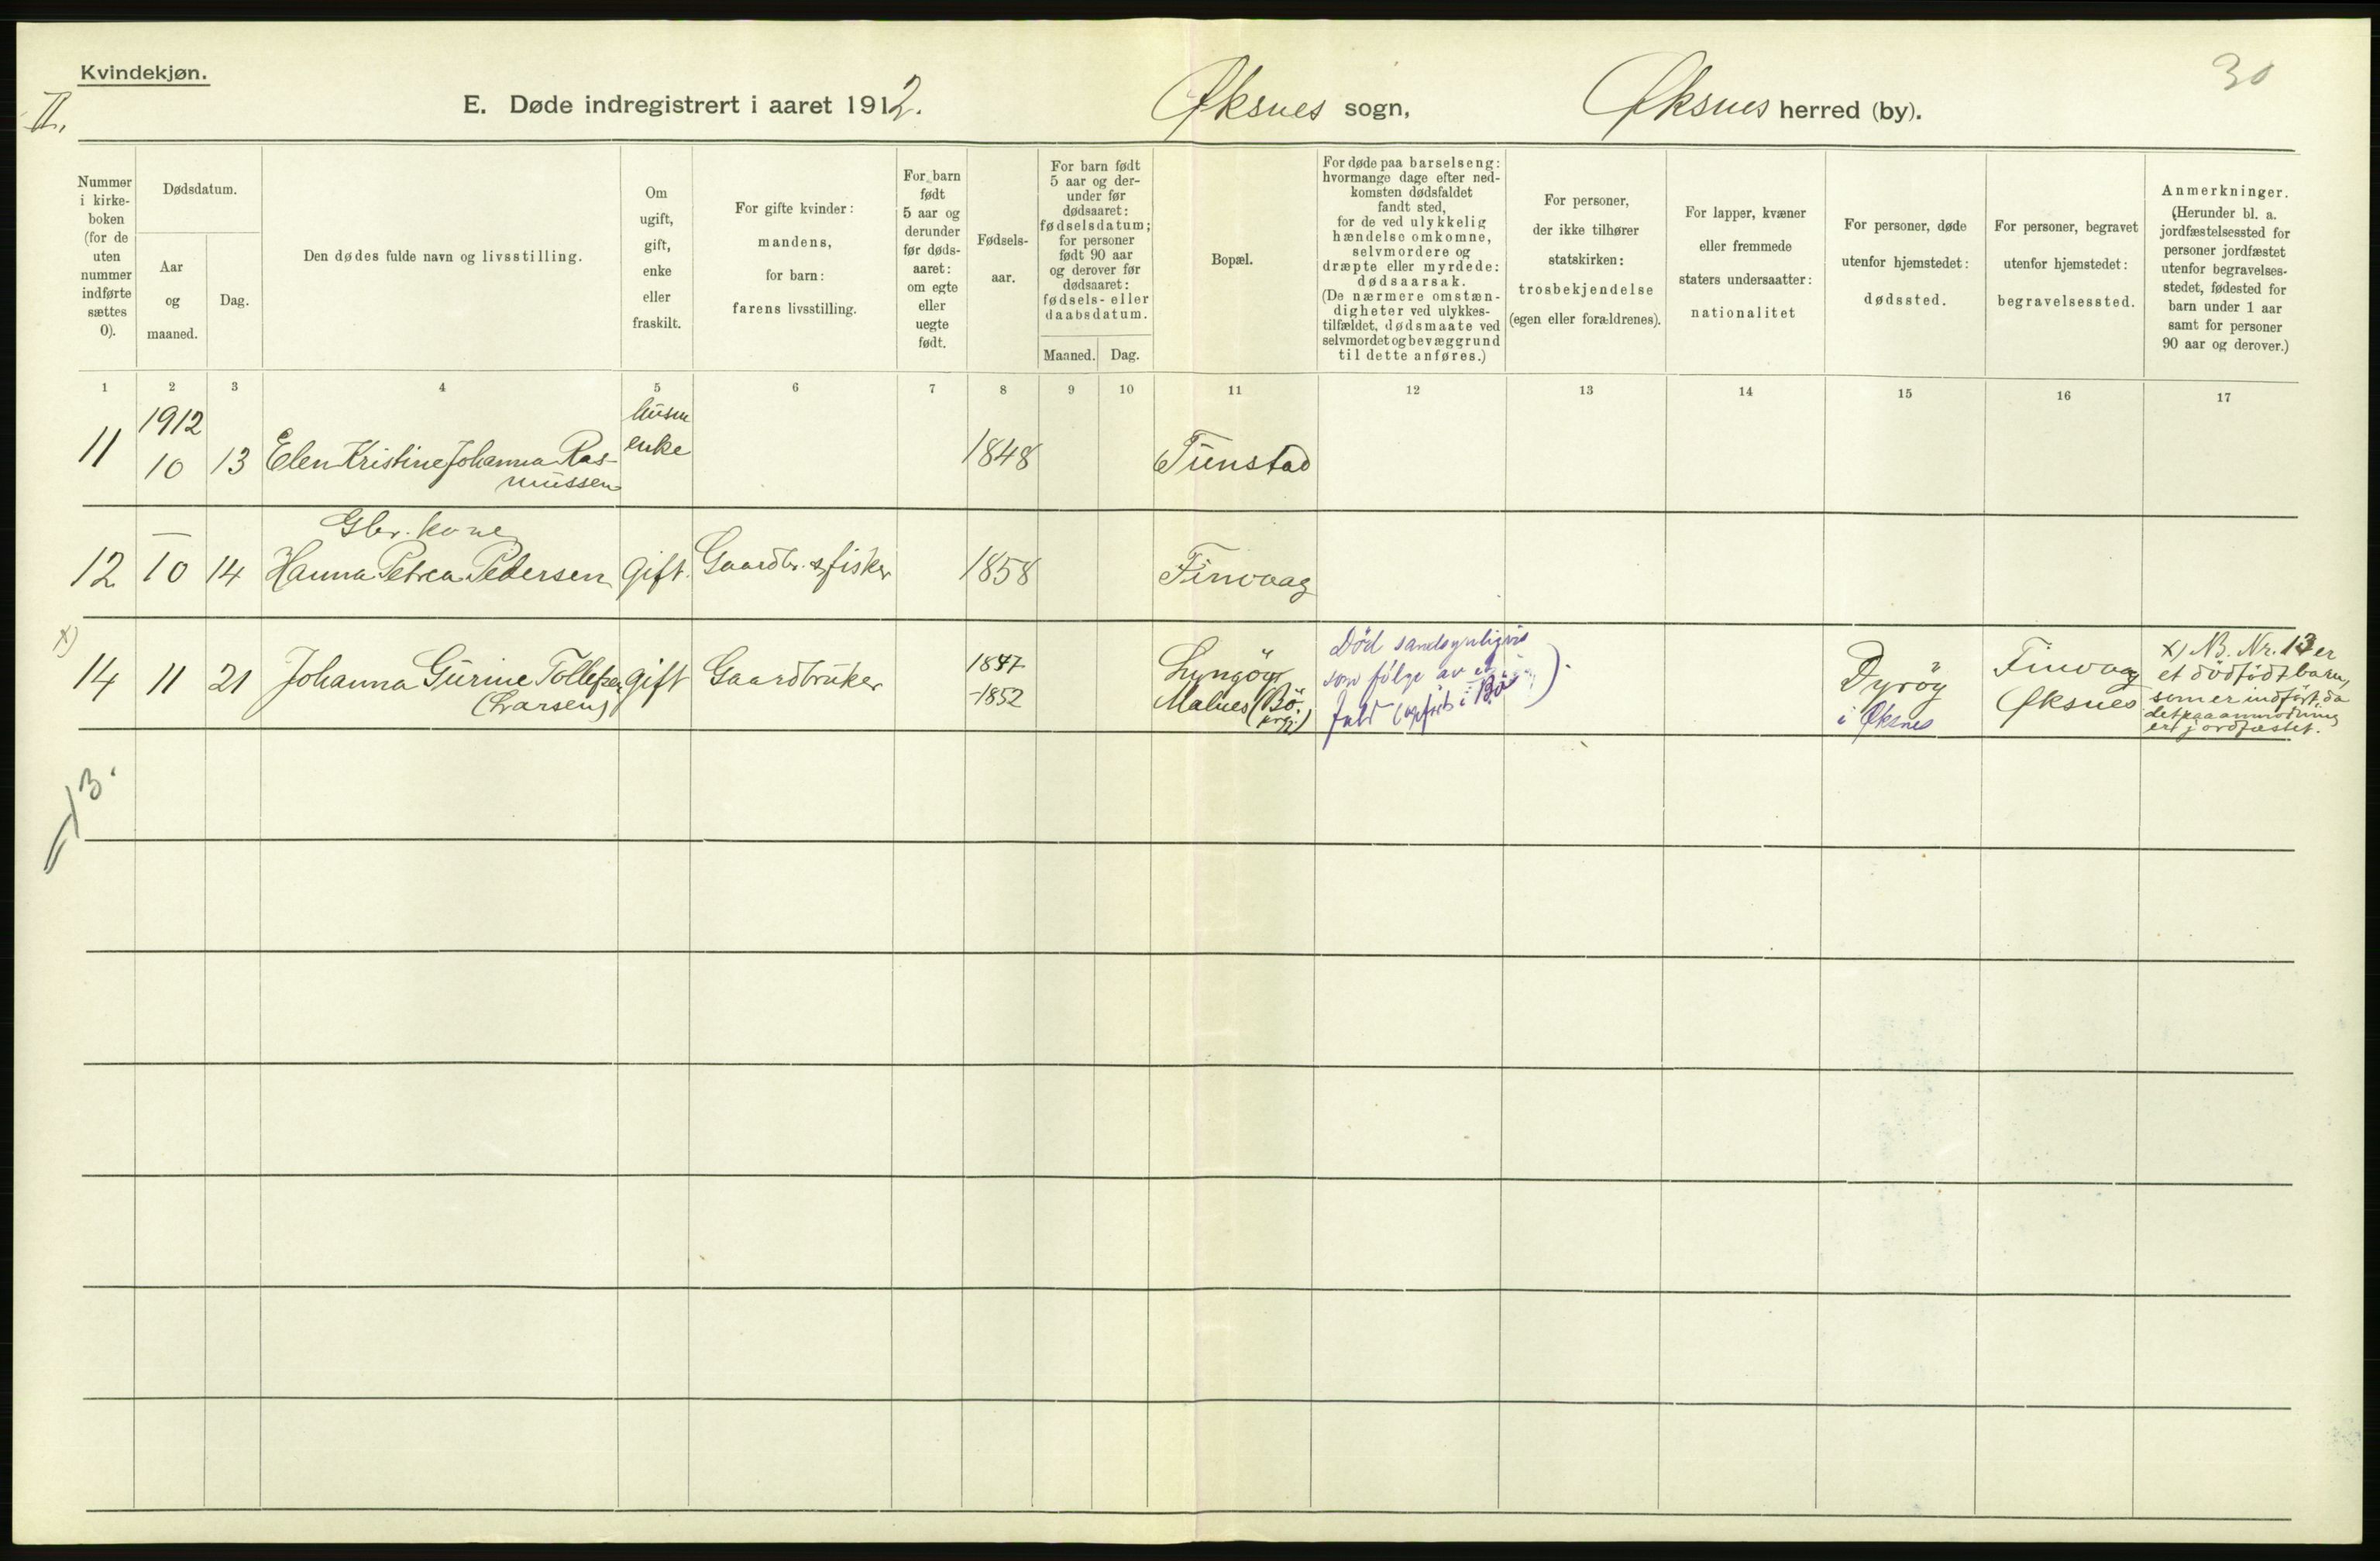 Kvindekjøn.
II.
30
E. Døde indregistrert i aaret 1912. Øksnes sogn, Øksnes herred (by).
Nummer
i kirke-
boken
(for de
uten
nummer
indførte
sættes
0).
Dødsdatum.
Aar
og
maaned.
Dag.
Den dødes fulde navn og livsstilling.
Om
ugift,
gift,
enke
eller
fraskilt.
For gifte kvinder:
mandens,
for barn:
farens livsstilling.
For barn
født
5 aar og
derunder
før døds-
aaret:
om egte
eller
uegte
født.
Fødsels-
aar.
For barn født
5 aar og der-
under før
dødsaaret:
fødselsdatum;
for personer
født 90 aar
og derover før
dødsaaret:
fødsels- eller
daabsdatum.
Maaned. Dag.
Bopæl.
For døde paa barselseng:
hvormange dage efter ned-
komsten dødsfaldet
fandt sted,
for de ved ulykkelig
hændelse omkomne,
selvmordere og
dræpte eller myrdede:
dødsaarsak.
(De nærmere omstæn-
digheter ved ulykkes-
tilfældet, dødsmaate ved
selvmordet og bevæggrund
til dette anføres.)
For personer,
der ikke tilhører
statskirken:
trosbekjendelse
(egen eller forældrenes).
For lapper, kvæner
eller fremmede
staters undersaatter:
nationalitet
For personer, døde
utenfor hjemstedet:
dødssted.
For personer, begravet
utenfor hjemstedet:
begravelsessted.
Anmerkninger.
(Herunder bl. a.
jordfæstelsessted for
personer jordfæstet
utenfor begravelses-
stedet, fødested for
barn under 1 aar
samt for personer
90 aar og derover.)
1 2 3 4 5 6 7 8 9 10 11 12 13 14 15 16 17
1912
11 10 13 Elen Kristine Johanna Ras-
mussen
enke
1848
Tunstad
Gbr. kone
12 10 14 Hanna Petrea Pedersen gift. Gaardbr. & fisker 1858 Finvaag
x)
14 11 21 Johanna Gurine Tollefsen
(Larsen)
gift Gaardbruker
1847
-1852
Lyngöy
Malnes (Bö.
prgj.)
Död sandsynligvis
som følge av et
fald (opført i Bö).
Dyröy
i Øksnes
Finvaag
Øksnes
x) NB. Nr. 13 er
et dödfödt barn,
som er indfört, da
det paa anmodning
er jordfæstet.
13.